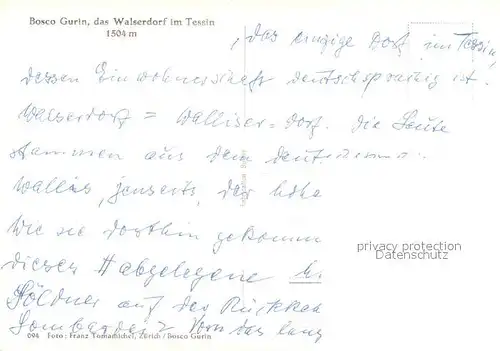 Bosco Gurin, das Walserdorf im Tessin
1504 m
, das einzige Dorf im Tessin,
dessen Einwohnerschaft deutschsprachig ist.
Walserdorf = Walliser=dorf. Die Leute
stammen aus dem
Wallis, jenseits der hohe
Wie sie dorthin gekomm
diesen abgelegene
Söldner auf der Rückkeh
Lombardei? Von das lang
privacy protection
Datenschutz
094 Foto: Franz Tomamichel, Zürich / Bosco Gurin